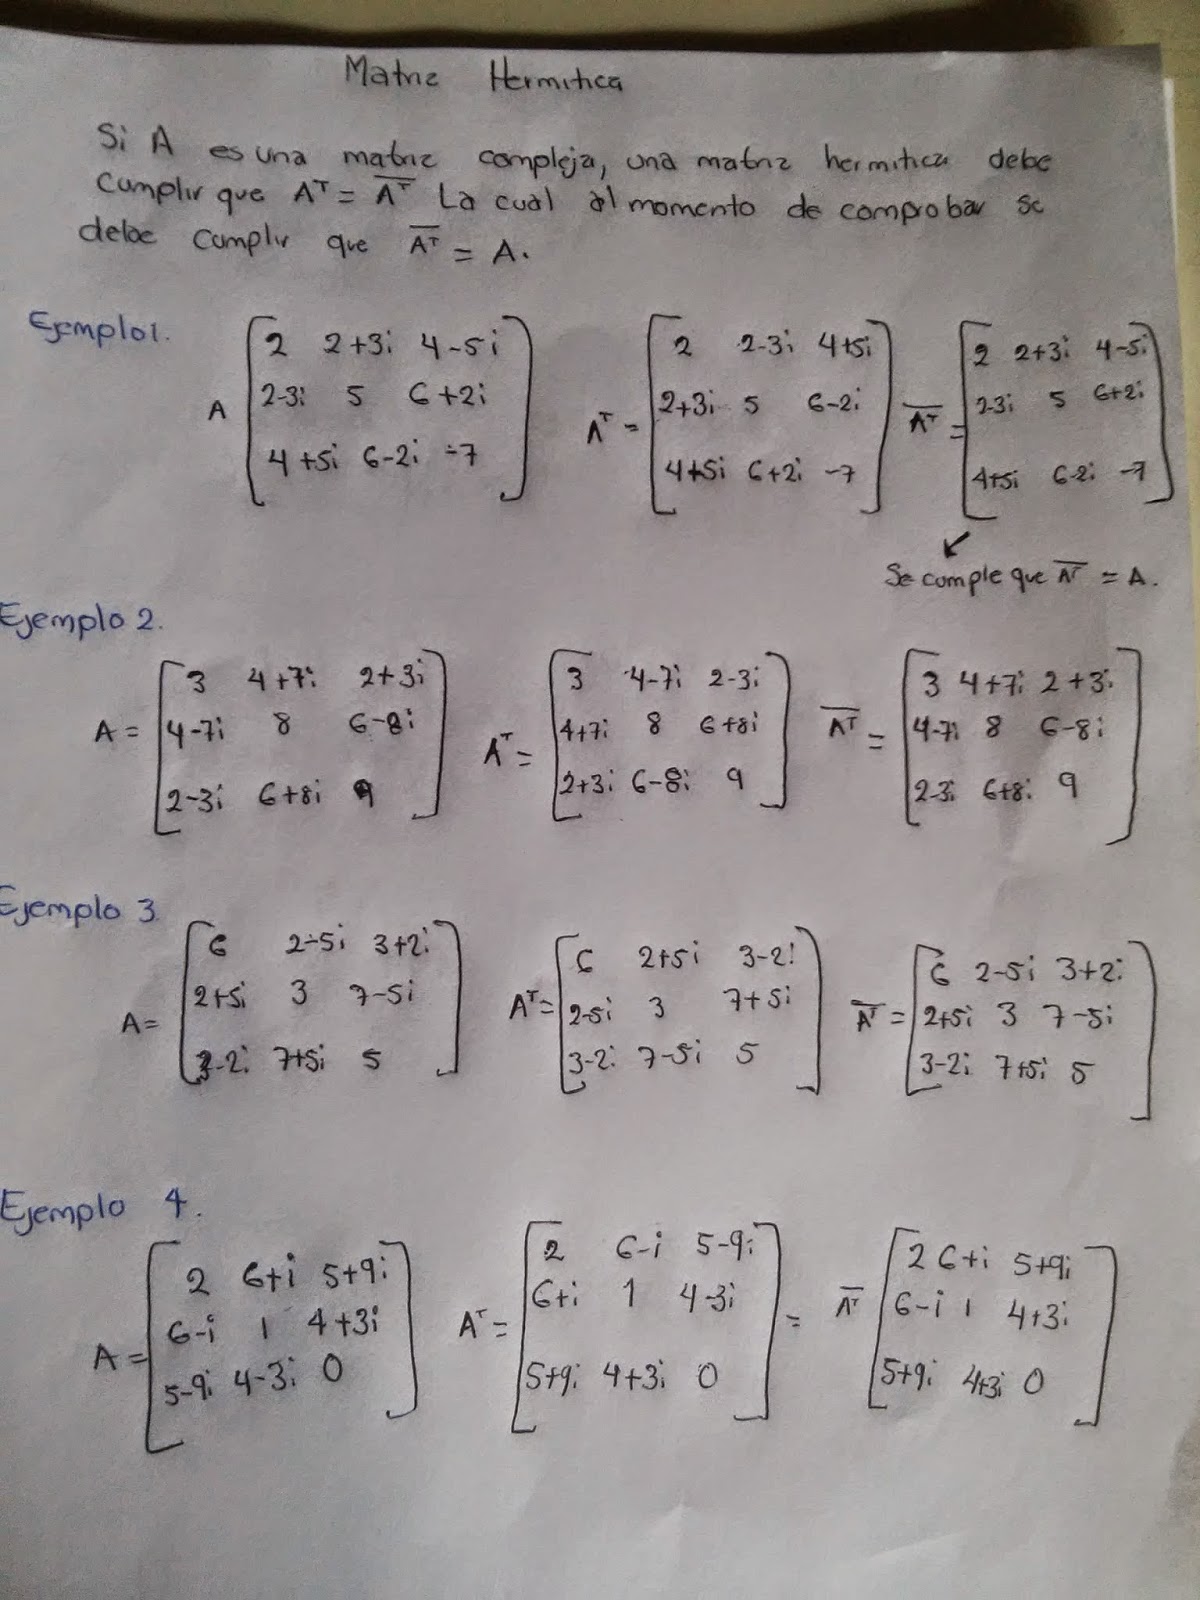 Matriz Hermitica
Si A es una matriz compleja, una matriz hermitica debe
cumplir que Aᵀ = A̅ᵀ̅ La cual al momento de comprobar se
debe cumplir que A̅ᵀ̅ = A.
Ejemplo 1.
A [2 2+3i 4-5i
2-3i 5 6+2i
4+5i 6-2i -7]
Aᵀ = [2 2-3i 4+5i
2+3i 5 6-2i
4+5i 6+2i -7]
A̅ᵀ̅ = [2 2+3i 4-5i
2-3i 5 6+2i
4+5i 6-2i -7]
Se cumple que A̅ᵀ̅ = A.
Ejemplo 2.
A = [3 4+7i 2+3i
4-7i 8 6-8i
2-3i 6+8i 9]
Aᵀ = [3 4-7i 2-3i
4+7i 8 6+8i
2+3i 6-8i 9]
A̅ᵀ̅ = [3 4+7i 2+3i
4-7i 8 6-8i
2-3i 6+8i 9]
Ejemplo 3
A = [6 2-5i 3+2i
2+5i 3 7-5i
3-2i 7+5i 5]
Aᵀ = [6 2+5i 3-2i
2-5i 3 7+5i
3-2i 7-5i 5]
A̅ᵀ̅ = [6 2-5i 3+2i
2+5i 3 7-5i
3-2i 7+5i 5]
Ejemplo 4.
A = [2 6+i 5+9i
6-i 1 4+3i
5-9i 4-3i 0]
Aᵀ = [2 6-i 5-9i
6+i 1 4-3i
5+9i 4+3i 0]
= A̅ᵀ̅ [2 6+i 5+9i
6-i 1 4+3i
5+9i 4+3i 0]